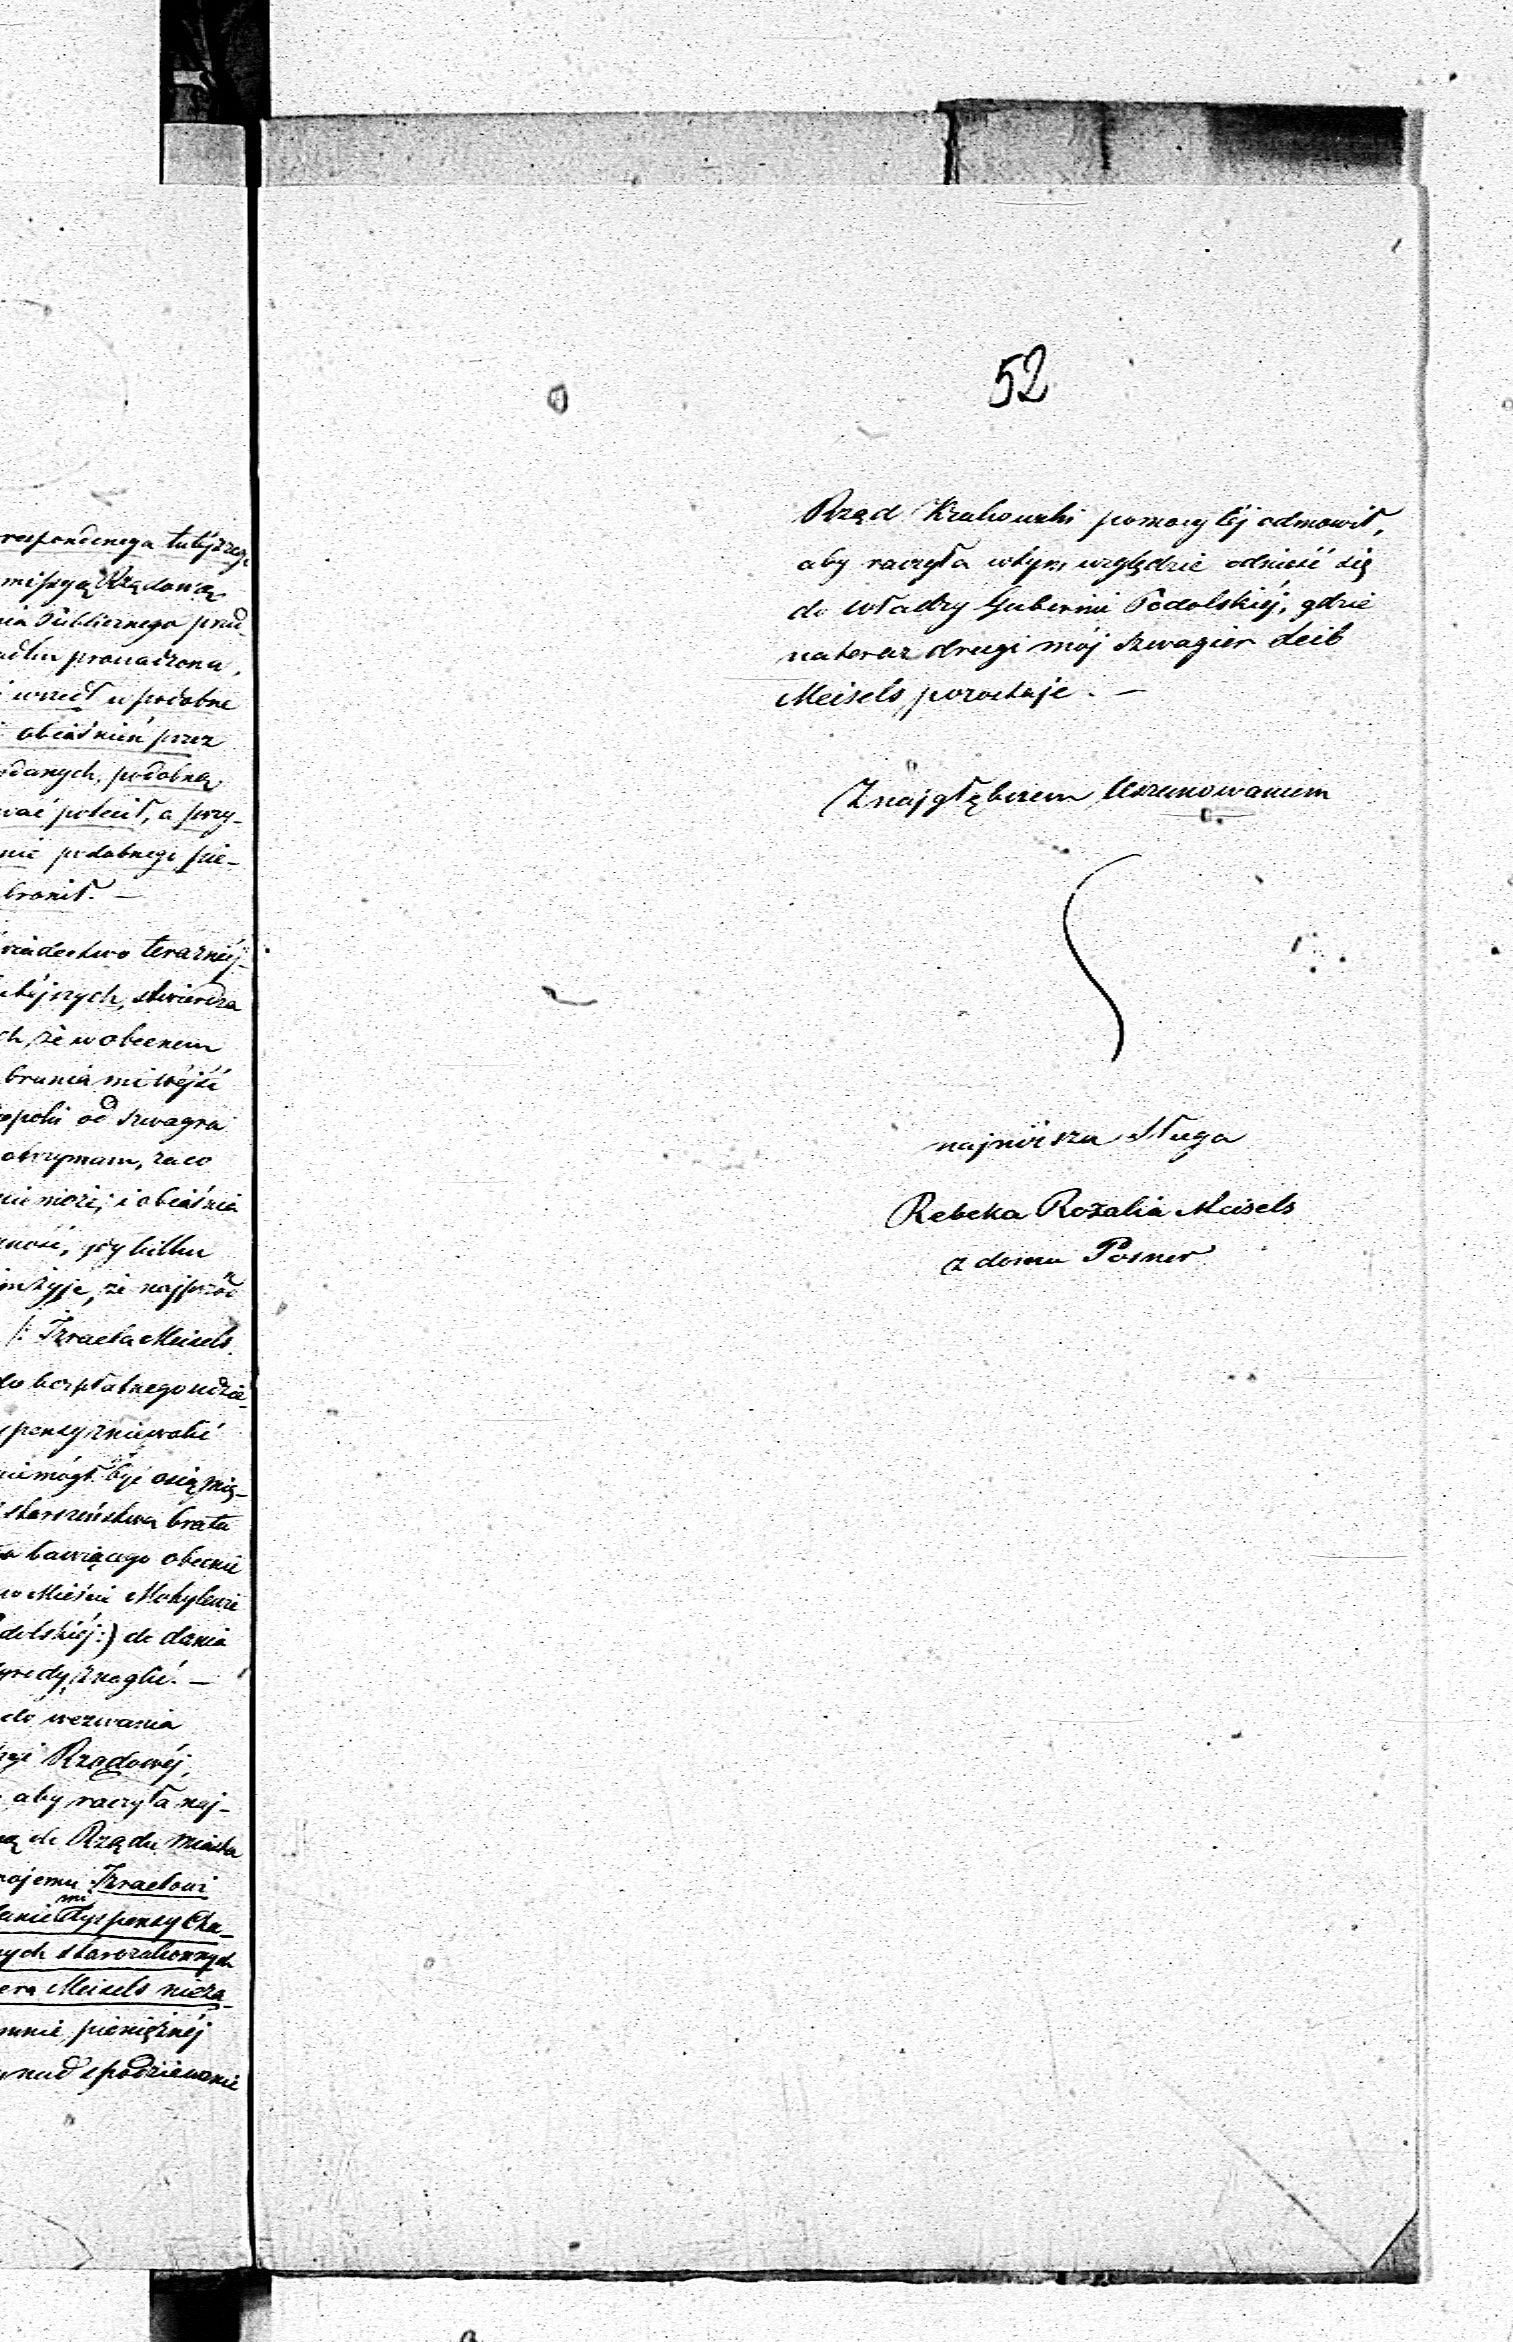 respondencya tutéjszego
missyą Rządową
nia Publicznego prze-
prowadzona,
wszedł w podobne
obiaśnień przez
odanych, podobną
wać polecił, a przy-
nie podobnego pie-
bronił. —
wiadectwo teraźniéj-
tutéjszych, stwierdza
ch, że w obecnem
brania mi wéjść
spółki od szwagra
otrzymam, za co
nie może; i obiaśnia
ność, gdy kilku
im żyje, że najprzód
/: Izraela Meisels
do bezpłatnego udzie-
spensy zniewolić
nie mógł być osiągnię-
starszeństwa brata
bawiącego obecnie
w Mieście Mohylewie
dolskiéj :) do dania
znaglić. —
do wezwania
Rządowéj,
aby raczyła naj-
ną do Rządu Miasta
mojemu Izraelowi
danie mi dyspensy Cha-
nych starozakonnych
Meisels nieza-
mnie, pieniężnéj
nad spodziewanie
52
Rząd Krakowski pomocy téj odmowił,
aby raczyła wtym względzie odnieść się
do Władzy Gubernii Podolskiéj, gdzie
nateraz drugi mój szwagier Leib
Meisels pozostaje. —
Z najgłębszem Uszanowaniem
najniższa Sługa
Rebeka Rozalia Meisels
z domu Posner